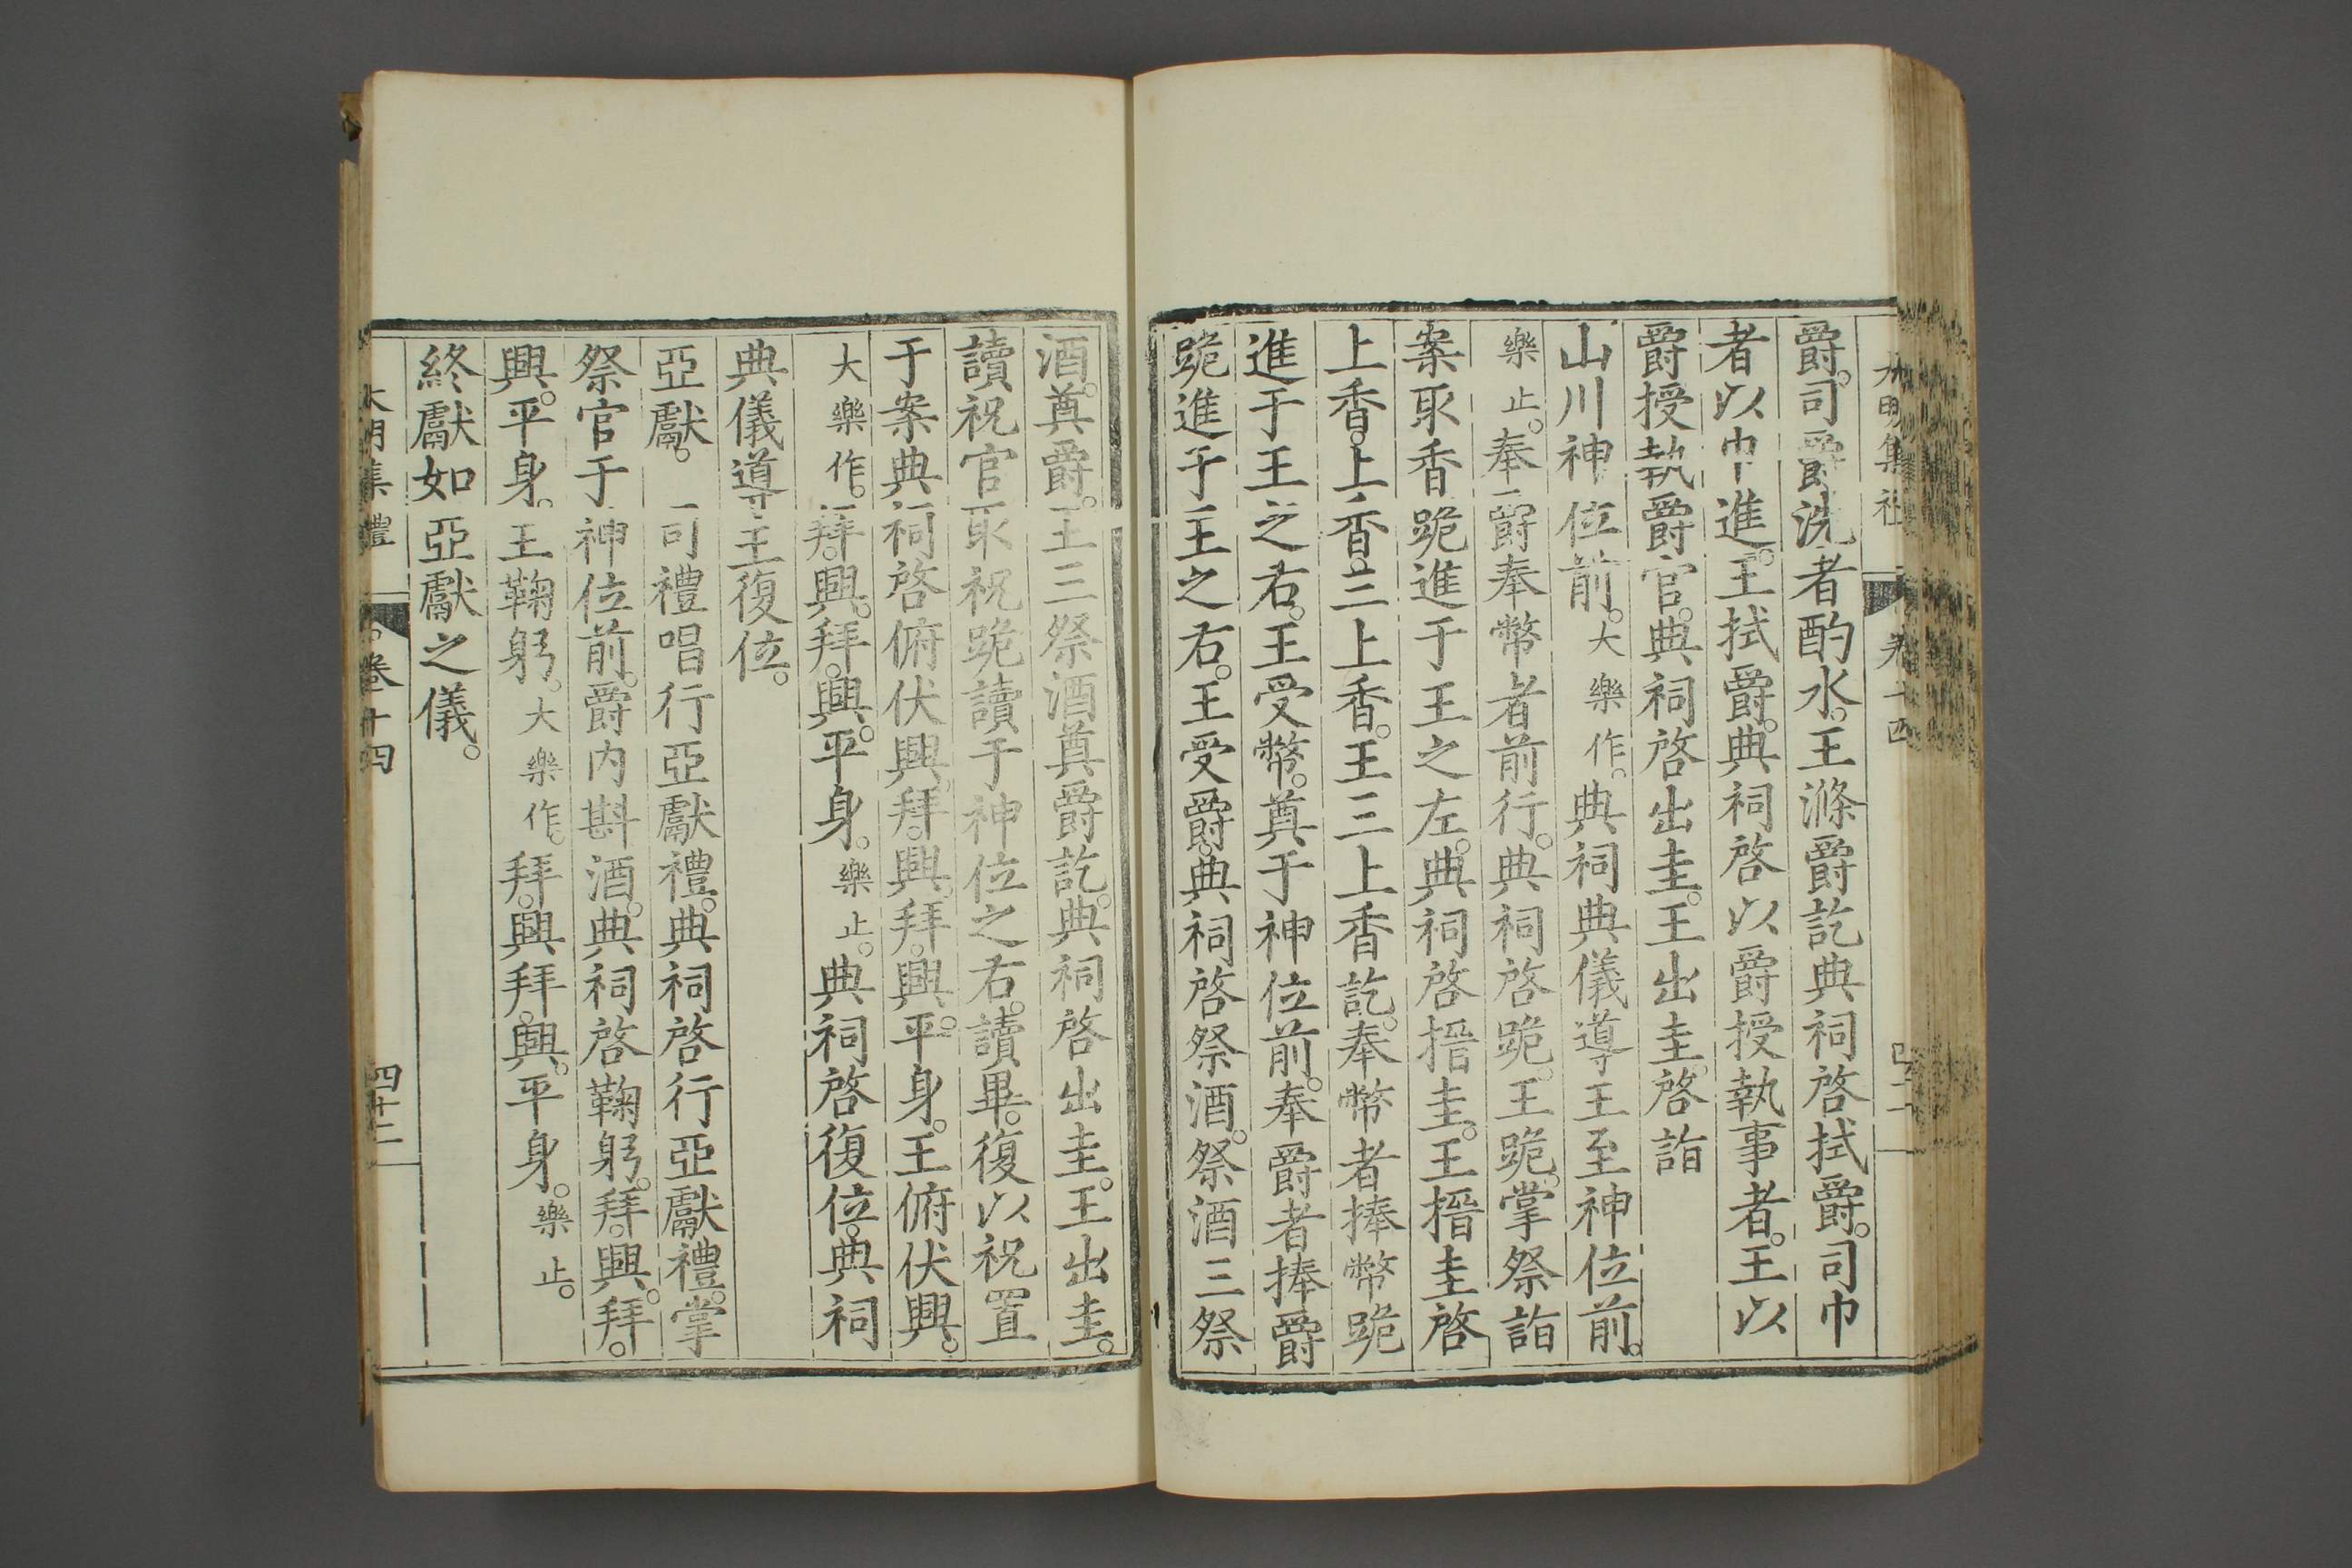 爵。司爵洗者酌水。王滌爵訖典祠啓拭爵。司巾
者以巾進。王拭爵。典祠啓以爵授執事者。王以
爵授執爵官。典祠啓出圭。王出圭。啓詣
山川神位前。大樂作。典祠典儀導王至神位前。
樂止。奉爵奉幣者前行。典祠啓跪。王跪。掌祭詣
案取香跪進于王之左。典祠啓搢圭。王搢圭啓
上香。上香。三上香。王三上香訖。奉幣者捧幣跪
進于王之右。王受幣。奠于神位前。奉爵者捧爵
跪進于王之右。王受爵。典祠啓祭酒。祭酒三祭
酒。奠爵。王三祭酒奠爵訖。典祠啓出圭。王出圭。
讀祝官取祝跪讀于神位之右。讀畢。復以祝置
于案典祠啓俯伏興。拜。興。拜。興。平身。王俯伏興。
大樂作。拜。興。拜。興。平身。樂止。典祠啓復位。典祠
典儀導王復位。
亞獻。司禮唱行亞獻禮。典祠啓行亞獻禮。掌
祭官于神位前。爵内斟酒。典祠啓鞠躬。拜。興。拜。
興。平身。王鞠躬。大樂作。拜。興拜。興。平身。樂止。
終獻如亞獻之儀。
大明集禮 卷十四 四十二